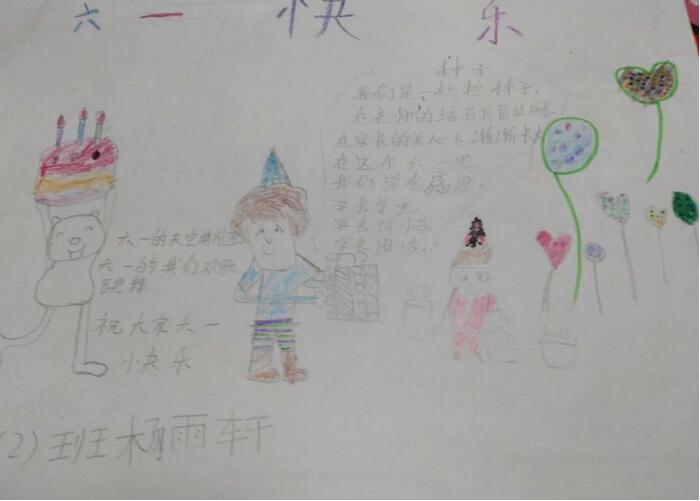 六一快乐
种子
我们是一粒粒种子,
在老师的培育下茁壮成长
在家长的关心下渐渐长大
在这个六一里
我们学会感恩。
学会
学会
学会团结。
六一的天空特别蓝
六一的我们欢歌
笑舞
祝大家六一
快乐
(2)班杨雨轩